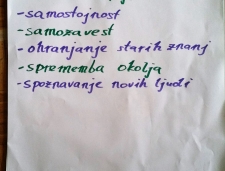 -samostojnost
-samozavest
-ohranjanje starih znanj
-sprememba okolja
-spoznavanje novih ljudi